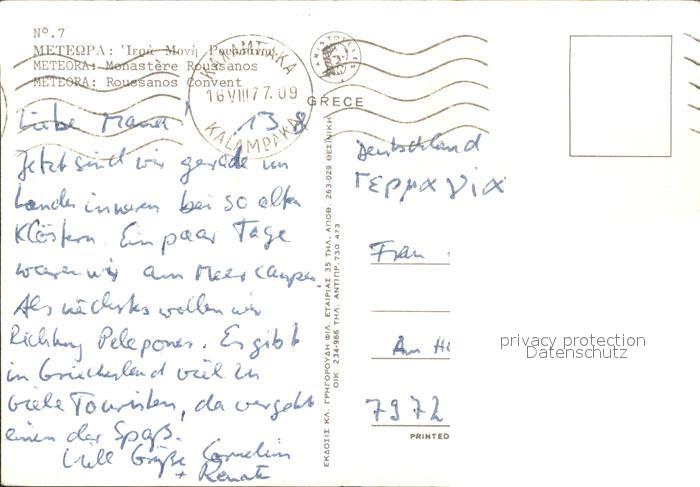 Nº. 7
ΜΕΤΕΩΡΑ: Ἱερὰ Μονὴ Ρουσάνου
METEORA: Monastère Roussanos
METEORA: Roussanos Convent
ΚΑΛΑΜΠΑΚΑ
16 VIII 77. 09
KALAMPAKA
GREECE
13.8
Jetzt sind wir gerade im
Landesinneren bei so alten
Klöstern. Ein paar Tage
waren wir am Meer campen.
Als nächstes wollen wir
Richtung Pelepones. Es gibt
in Griechenland viel zu
viele Touristen, da vergeht
einem der Spaß.
Viele Grüße Cornelius
+ Renate
ΕΚΔΟΣΙΣ ΚΛ. ΓΡΗΓΟΡΟΥΔΗ ΦΙΛ. ΕΤΑΙΡΙΑΣ 35 ΤΗΛ. ΑΠΟΘ. 263-029 ΘΕΣ/ΝΙΚΗ
ΟΙΚ. 234-966 ΤΗΛ. ΑΝΤΙΠΡ. 730 473
Deutschland
Γερμανία
Frau
Am
7972
PRINTED
privacy protection
Datenschutz